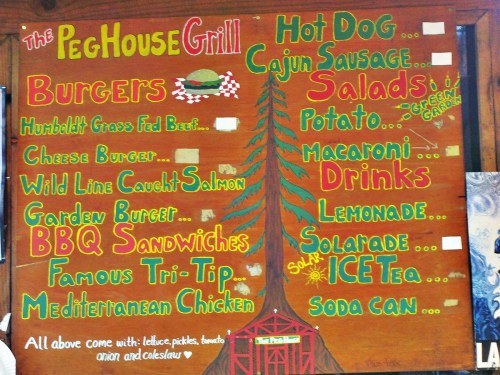 The PegHouse Grill
Burgers
Humboldt Grass Fed Beef...
Cheese Burger...
Wild Line Caught Salmon
Garden Burger...
BBQ Sandwiches
Famous Tri-Tip...
Mediterranean Chicken
All above come with: lettuce, pickles, tomato
onion and coleslaw
Hot Dog...
Cajun Sausage...
Salads
Green
Garden
Potato...
Macaroni...
Drinks
Lemonade...
Solarade...
Solar
ICE Tea...
Soda Can...
The Peg House
LA